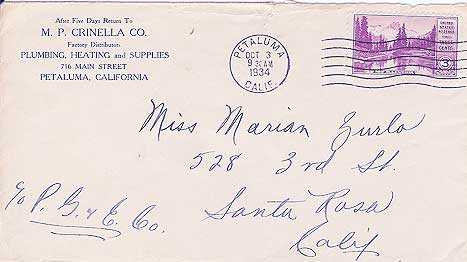 After Five Days Return To
M. P. CRINELLA CO.
Factory Distributors
PLUMBING, HEATING and SUPPLIES
716 MAIN STREET
PETALUMA, CALIFORNIA
PETALUMA
OCT 3
9 30AM
1934
CALIF.
UNITED STATES
POSTAGE
THREE
CENTS
3
Miss Marian Zurlo
528 3rd St.
Santa Rosa
Calif
c/o P. G. & E. Co.